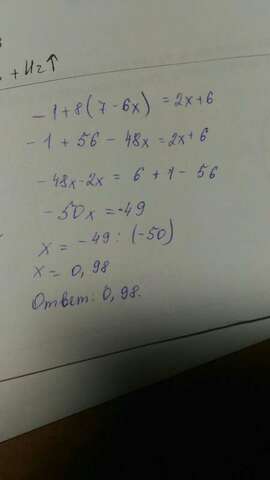 + H₂↑
-1+8(7-6x) = 2x+6
-1 + 56 - 48x = 2x+6
-48x-2x = 6 + 1 - 56
-50x = -49
x = -49 : (-50)
x = 0,98
Ответ: 0,98.